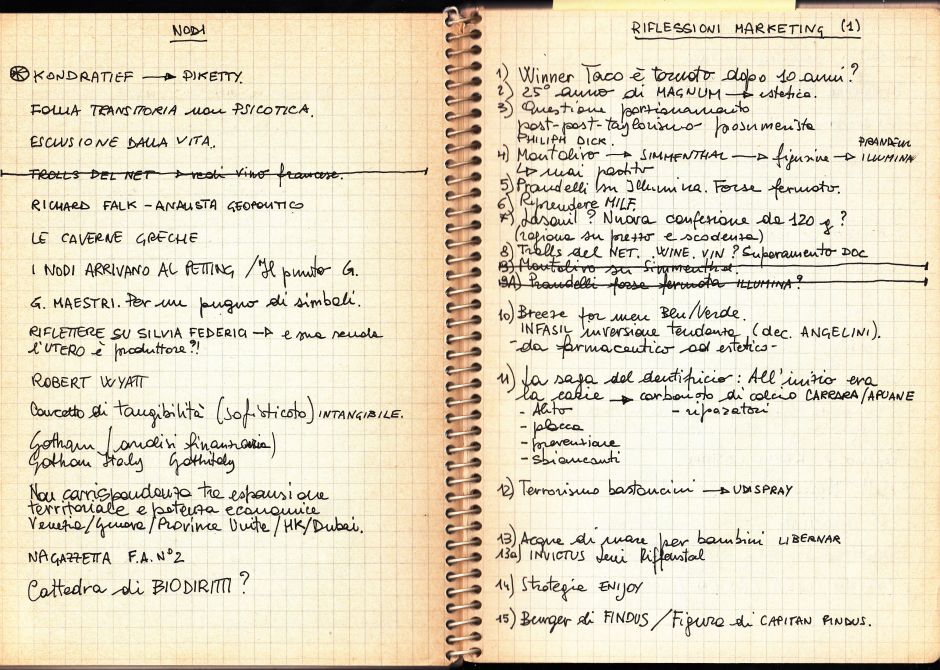 NODI
KONDRATIEF → PIKETTY.
FOLLIA TRANSITORIA non PSICOTICA.
ESCLUSIONE DALLA VITA.
TROLLS DEL NET → vedi vino francese.
RICHARD FALK - ANALISTA GEOPOLITICO
LE CAVERNE GRECHE
I NODI ARRIVANO AL PETTING / Il punto G.
G. MAESTRI. Per un pugno di simboli.
RIFLETTERE SU SILVIA FEDERICI → e sua scuola
l'UTERO è produttore?!
ROBERT WYATT
Concetto di tangibilità (sofisticato) INTANGIBILE.
Gotham (analisi finanziaria)
Gotham Italy Gothitaly
Non corrispondenza tra espansione
territoriale e potenza economica
Venezia/Genova/Province Unite/HK/Dubai.
NAGAZZETTA F.A. N°2
Cattedra di BIODIRITTI?
RIFLESSIONI MARKETING (1)
1) Winner Taco è tornato dopo 10 anni?
2) 25° anno di MAGNUM → estetica.
3) Questione porzionamento
post-post-taylorismo posumerista
PHILIPH DICK.
4) Montolivo → SIMMENTHAL → figurine → PRANDELLI ILLUMINA
↳ mai partito
5) Prandelli su Illumina. Forse fermato.
6) Riprendere MILF.
7) Lasonil? Nuova confezione da 120 g?
(ragiona su prezzo e scadenza)
8) Trolls del NET. WINE. VIN? Superamento DOC
9) Montolivo su Simmenthal.
9A) Prandelli forse fermata ILLUMINA?
10) Breeze for men Blu/Verde.
INFASIL inversione tendenza (dec. ANGELINI).
- da farmaceutico ad estetico -
11) La saga del dentifricio: All'inizio era
la carie → carbonato di calcio CARRARA/APUANE
- Alito - riparatori
- placca
- prevenzione
- sbiancanti
12) Terrorismo bastoncini → UDISPRAY
13) Acque di mare per bambini LIBERNAR
13a) INVICTUS Leni Riffenstal
14) Strategie ENIJOY
15) Burger di FINDUS / Figura di CAPITAN FINDUS.